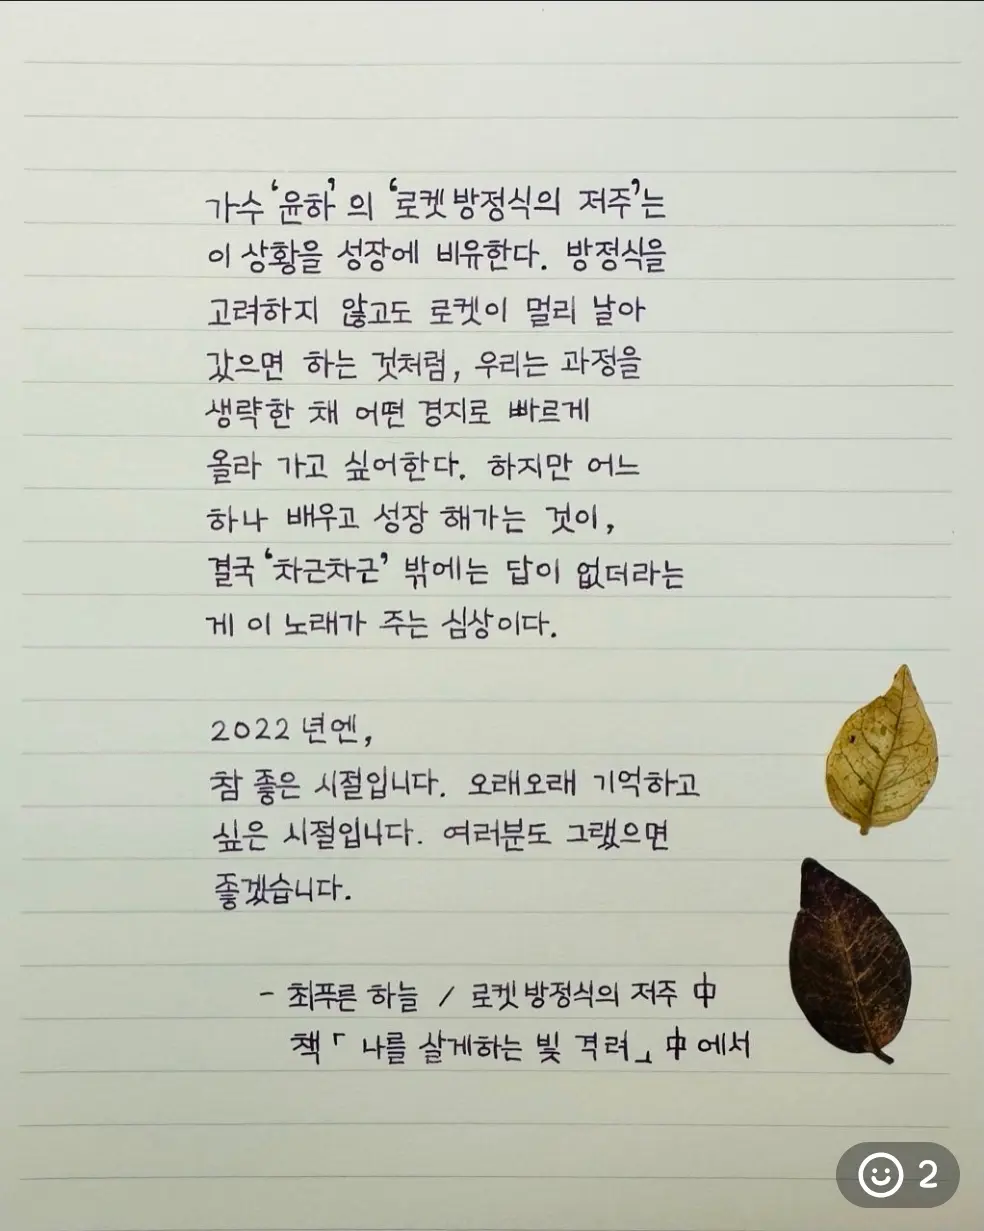 가수 '윤하'의 '로켓 방정식의 저주'는
이 상황을 성장에 비유한다. 방정식을
고려하지 않고도 로켓이 멀리 날아
갔으면 하는 것처럼, 우리는 과정을
생략한 채 어떤 경지로 빠르게
올라 가고 싶어한다. 하지만 어느
하나 배우고 성장 해가는 것이,
결국 '차근차근' 밖에는 답이 없더라는
게 이 노래가 주는 심상이다.
2022년엔,
참 좋은 시절입니다. 오래오래 기억하고
싶은 시절입니다. 여러분도 그랬으면
좋겠습니다.
- 최푸른하늘 / 로켓 방정식의 저주 中
책「 나를 살게하는 빛 격려」中에서
2